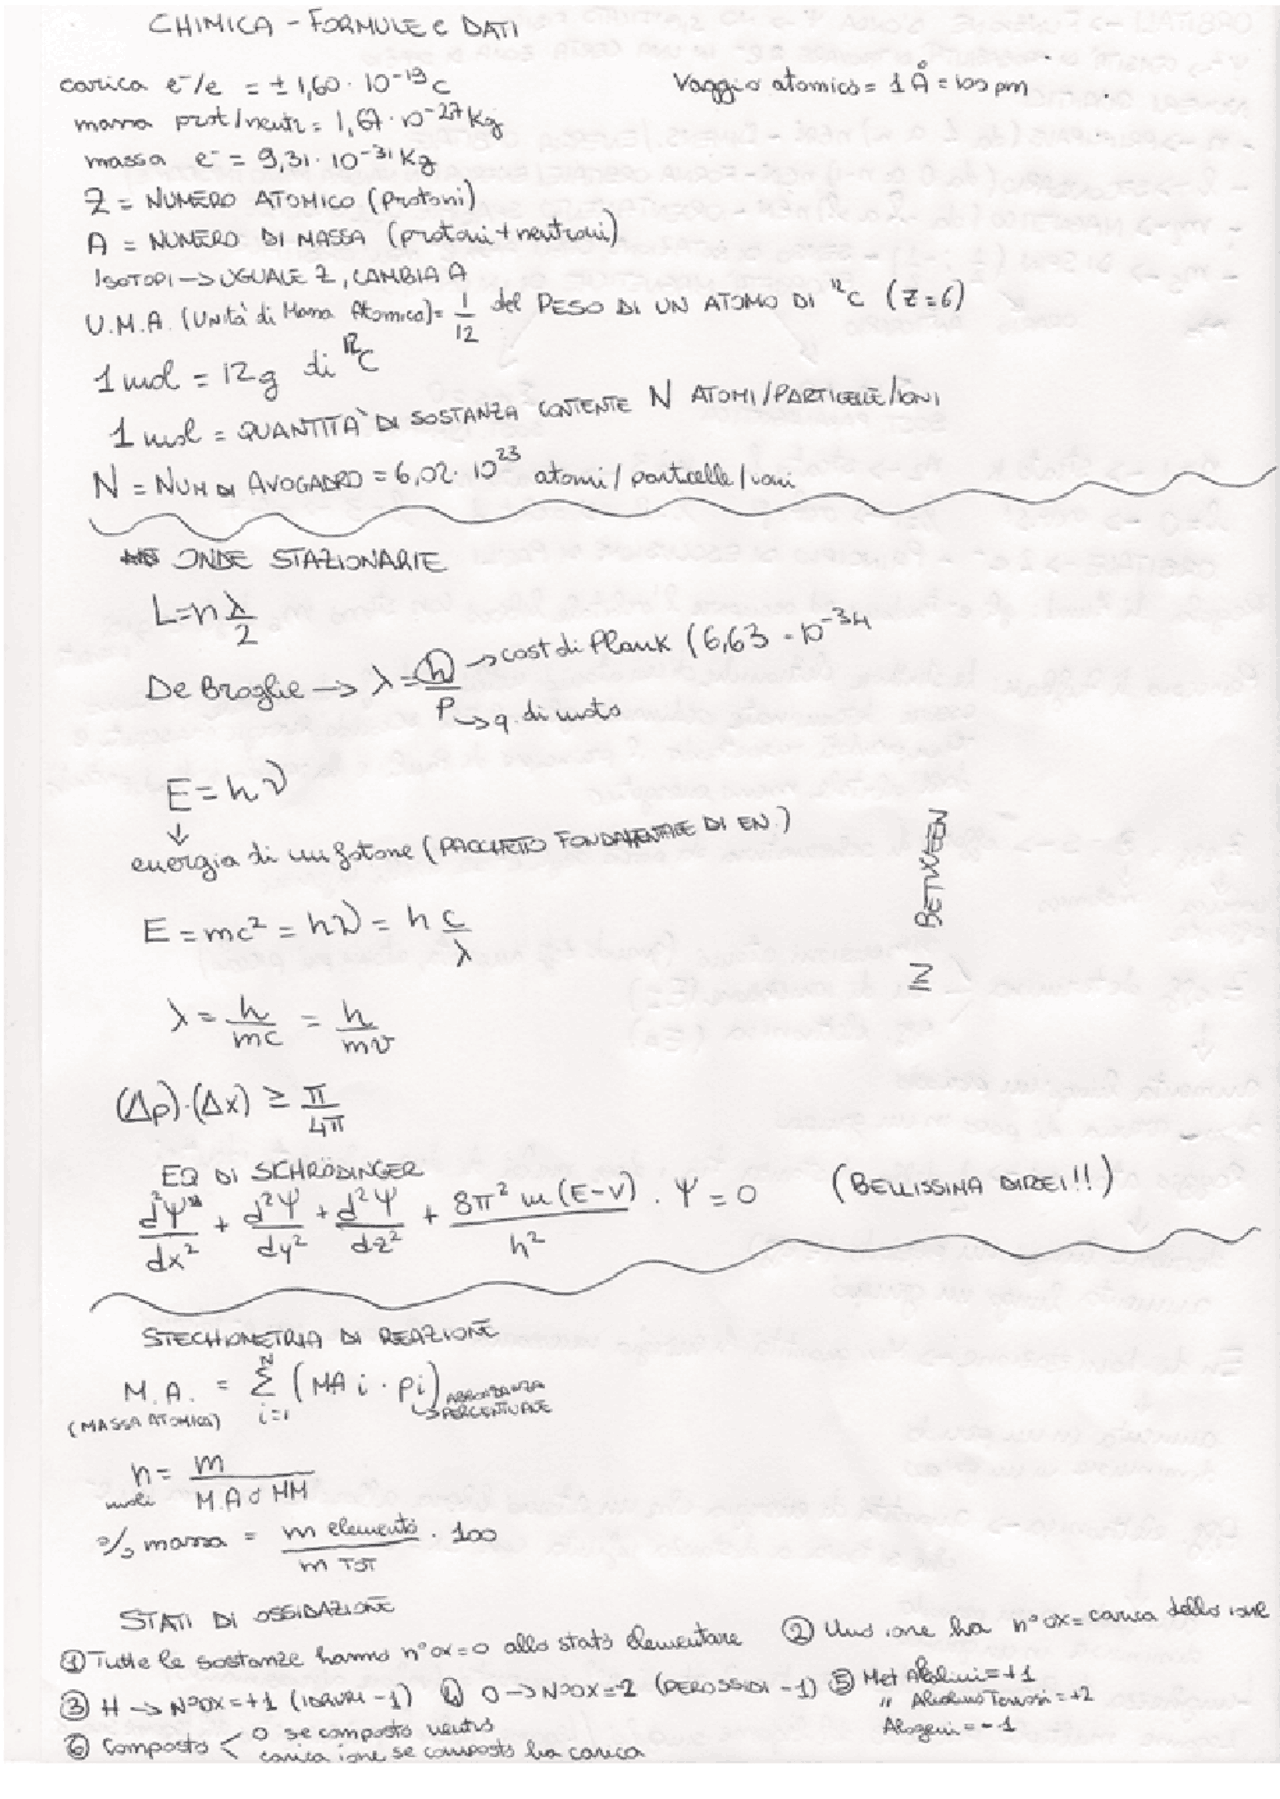 CHIMICA - FORMULE e DATI
carica e⁻/e = ± 1,60 · 10⁻¹⁹ C
raggio atomico = 1 Å = 100 pm
massa prot/neutr = 1,67 · 10⁻²⁷ Kg
massa e⁻ = 9,31 · 10⁻³¹ Kg
Z = NUMERO ATOMICO (protoni)
A = NUMERO DI MASSA (protoni + neutroni)
ISOTOPI → UGUALE Z, CAMBIA A
U.M.A. (Unità di Massa Atomica) = 1/12 del PESO DI UN ATOMO DI ¹²C (Z=6)
1 mol = 12 g di ¹²C
1 mol = QUANTITÀ DI SOSTANZA CONTENTE N ATOMI/PARTICELLE/IONI
N = NUM DI AVOGADRO = 6,02 · 10²³ atomi/particelle/ioni
ONDE STAZIONARIE
L = n λ/2
De Broglie → λ = h/P → cost di Plank (6,63 · 10⁻³⁴
→ q. di moto
E = hν
↓
energia di un fotone (PACCHETTO FONDAMENTALE DI EN.)
IN BETWEEN
E = mc² = hν = h c/λ
λ = h/mc = h/mv
(Δp)·(Δx) ≥ π/4π
EQ DI SCHRÖDINGER
d²Ψ/dx² + d²Ψ/dy² + d²Ψ/dz² + 8π² m (E-V)/h² · Ψ = 0 (BELLISSIMA DIREI!!)
STECHIOMETRIA DI REAZIONE
M.A. = Σ i=1 (MA i · pi) → ABBONDANZA PERCENTUALE
(MASSA ATOMICA)
n = m / M.A o MM
moli
% massa = m elemento / m TOT · 100
STATI DI OSSIDAZIONE
① Tutte le sostanze hanno n° ox = 0 allo stato elementare ② Uno ione ha n° ox = carica dello ione
③ H → N°OX = +1 (IDRURI -1) ④ O → N°OX = -2 (PEROSSIDI -1) ⑤ Met Alcalini = +1
" Alcalino Terrosi = +2
Alogeni = -1
⑥ Composto < 0 se composto neutro
carica ione se composto ha carica